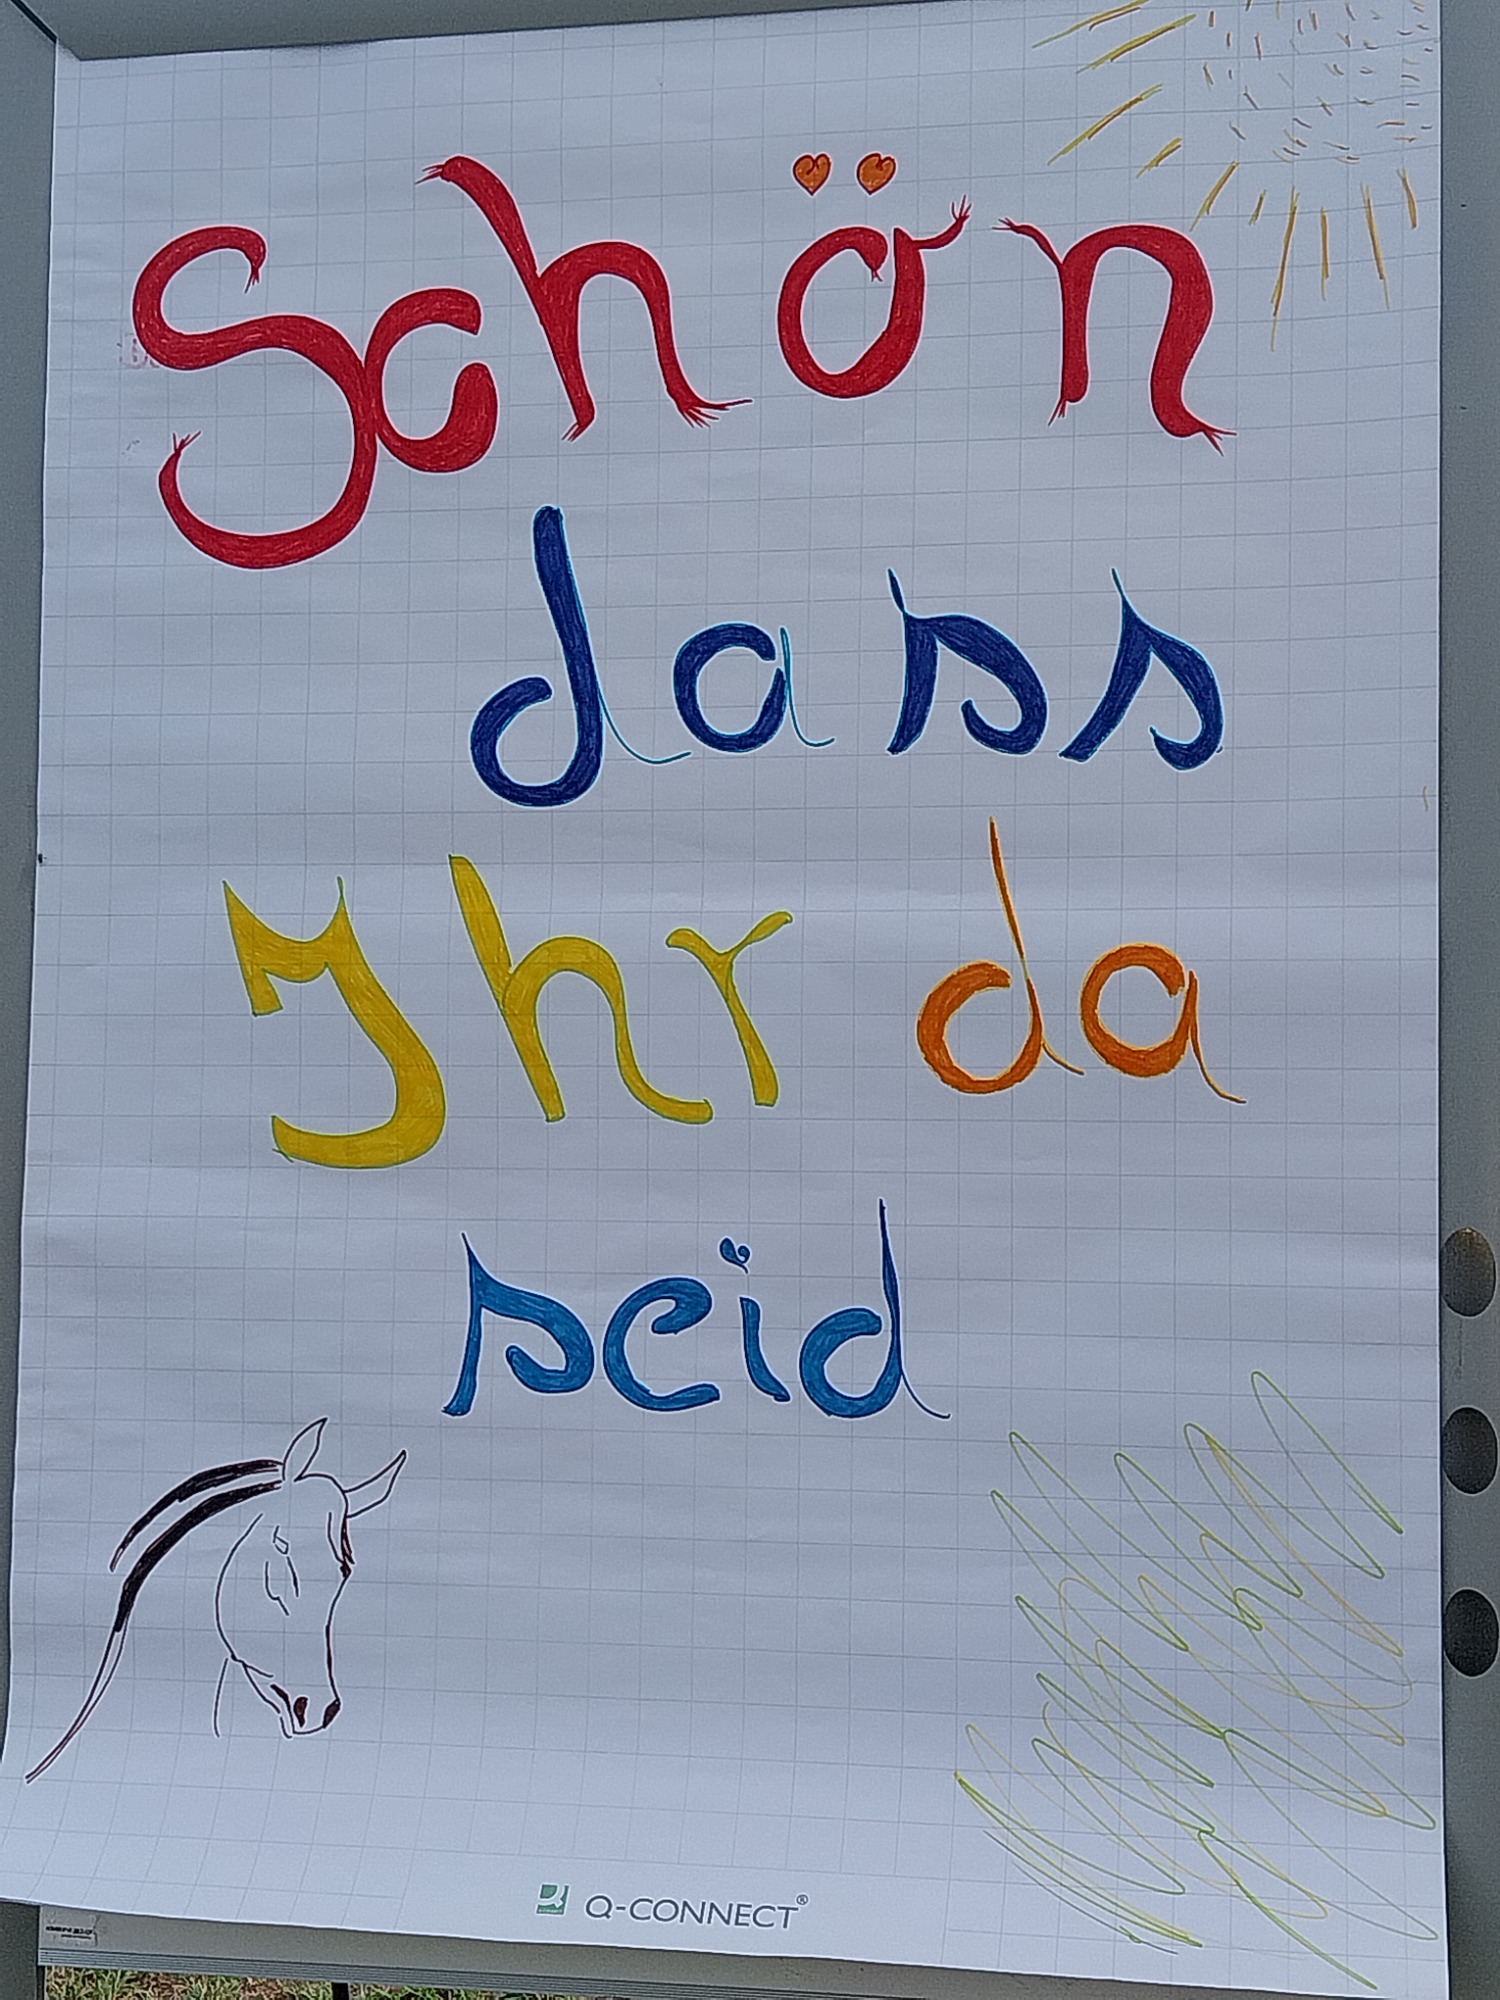 Schön
dass
Ihr da
seid
Q-CONNECT®